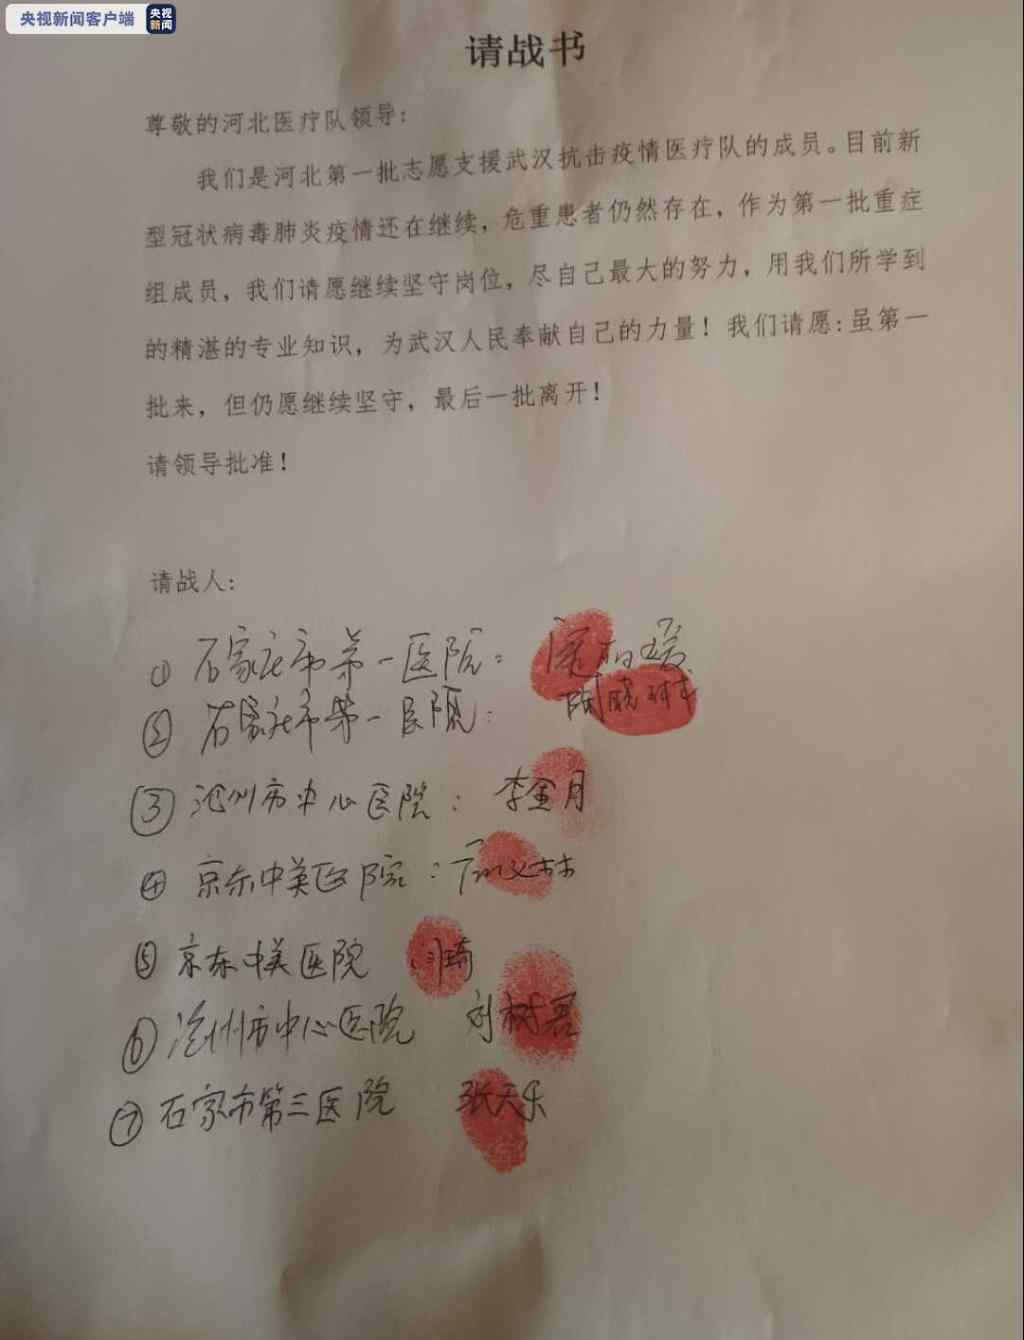 央视新闻客户端 央视新闻
请战书
尊敬的河北医疗队领导:
我们是河北第一批志愿支援武汉抗击疫情医疗队的成员。目前新
型冠状病毒肺炎疫情还在继续，危重患者仍然存在，作为第一批重症
组成员，我们请愿继续坚守岗位，尽自己最大的努力，用我们所学到
的精湛的专业知识，为武汉人民奉献自己的力量！我们请愿:虽第一
批来，但仍愿继续坚守，最后一批离开！
请领导批准！
请战人:
① 石家庄市第一医院:
② 石家庄市第一医院:
③ 沧州市中心医院: 李金月
④ 京东中美医院:
⑤ 京东中美医院 闫琦
⑥ 沧州市中心医院 刘树君
⑦ 石家市第三医院 张天乐